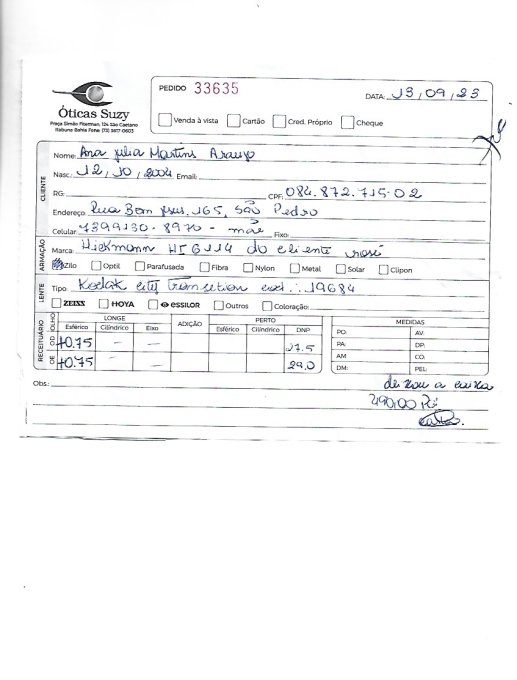 PEDIDO 33635
DATA: 13/09/23
Óticas Suzy
Praça Simão Fiterman, 124 São Caetano
Itabuna Bahia Fone: (73) 3617-0603
Venda à vista Cartão Cred. Próprio Cheque
CLIENTE
Nome: Ana Julia Martins Araujo
Nasc.: 12/10/2004 Email:
RG: CPF: 084.872.715-02
Endereço: Rua Bom Jesus, 165, São Pedro
Celular: 7399130-8970 - mãe Fixo:
ARMAÇÃO
Marca: Hickmann HI 6114 do cliente rosé
Zilo Optil Parafusada Fibra Nylon Metal Solar Clipon
LENTE
Tipo: Kodak city Transition cod.: 19684
ZEISS HOYA ESSILOR Outros Coloração:
RECEITUÁRIO
OLHO LONGE ADIÇÃO PERTO MEDIDAS
Esférico Cilíndrico Eixo Esférico Cilíndrico DNP
OD +0.75 - - 27.5
OE +0.75 - - 29.0
PO: AV:
PA: DP:
AM CO:
DM: PEL:
Obs.: deixou a caixa
490,00